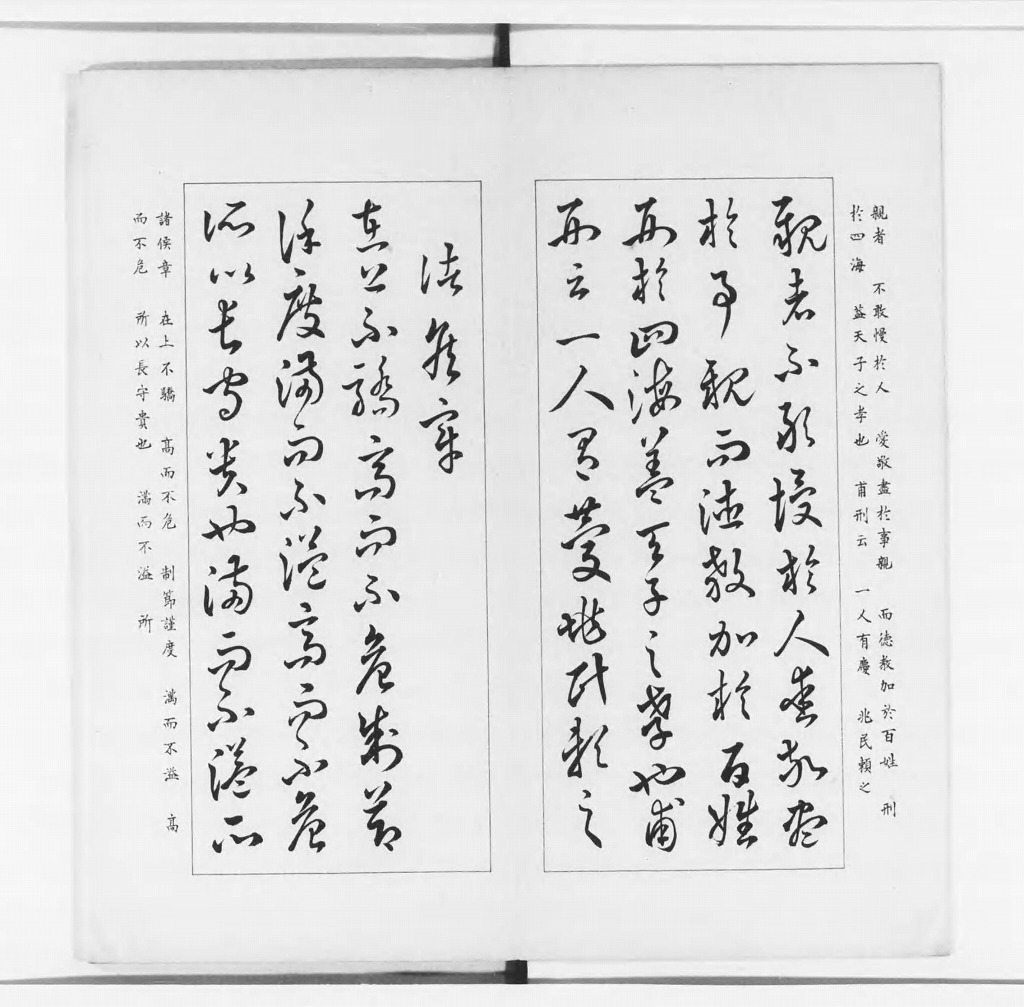 親者 不敢慢於人 愛敬盡於事親 而德教加於百姓 刑
於四海 葢天子之孝也 甫刑云 一人有慶 兆民賴之
親者不敢慢於人愛敬盡
於事親而德教加於百姓
刑於四海葢天子之孝也甫
刑云一人有慶兆民賴之
諸侯章
在上不驕高而不危制節
謹度滿而不溢高而不危
所以長守貴也滿而不溢所
諸侯章 在上不驕 高而不危 制節謹度 滿而不溢 高
而不危 所以長守貴也 滿而不溢 所